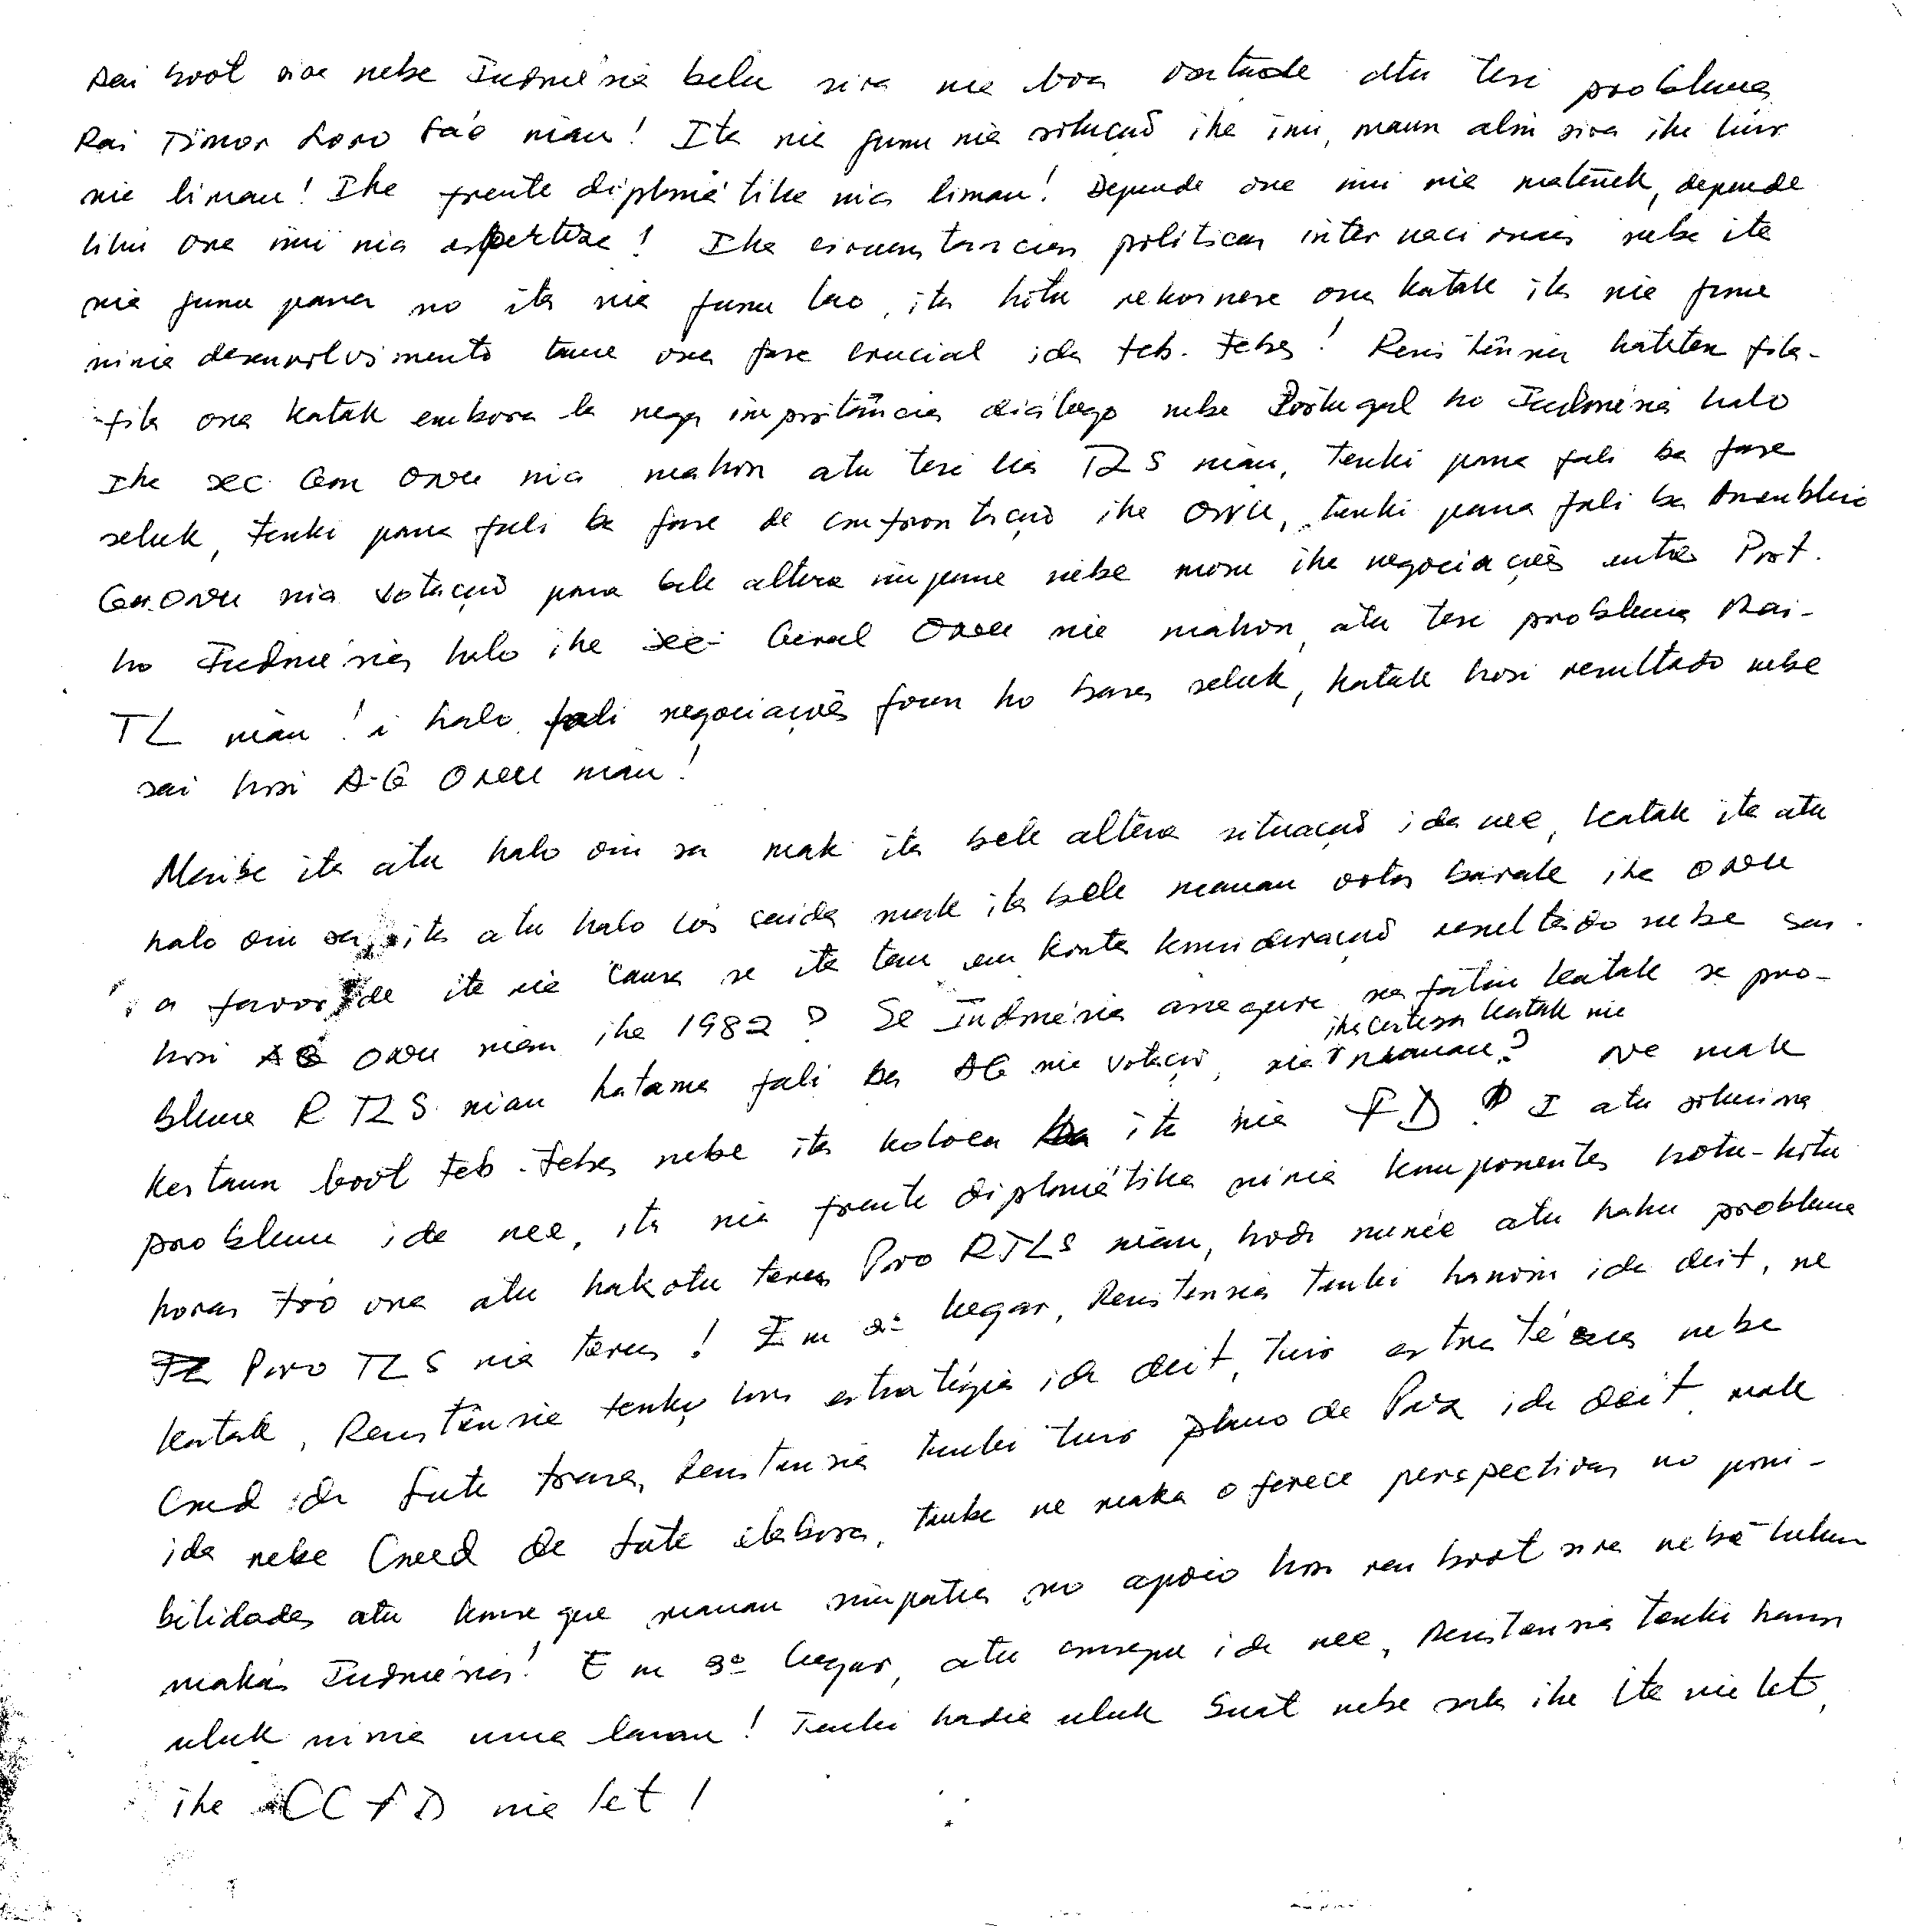 Rai boot sira nebe Indonésia belu sira nia boa vontade atu tesi problema
Rai Timor Loro Sá'e nian! Ita nia funu nia solução ihe imi, maun alin sira ihe liur
nia liman! Ihe frente diplomátika nia liman! Depende ona imi nia matenek, depende
lihu ona imi nia espertiza! Ihe circunstancias politicas internacionais nebe ita
nia funu pasa no ita nia funu lao, ita hotu rekoinese ona katak ita nia funu
ninia desenvolvimento tama ona fase crucial ida teb-tebes! Resistênsia hateten fila-
fila ona katak embora la nega importância diálogo nebe Portugal ho Indonésia halo
Ihe Sec. Gen ONU nia mahon atu tesi lia TLS nian, tenki pasa fali ba fase
seluk, tenki pasa fali ba fase de confrontação ihe ONU, tenki pasa fali ba Assembleia
Ger. ONU nia votação para bele altera impasse nebe mosu ihe negociações entre Port.
ho Indonésia halo ihe Sec. Geral ONU nia mahon atu tesi problema Rai-
TL nian! i halo fali negociações foun ho bases seluk, katak hosi resultado nebe
sai hosi A-G ONU nian!
Maibe ita atu halo oin sa mak ita bele altera situação ida nee, katak ita atu
halo oin sa, ita atu halo los saida mak ita bele manan votos barak ihe ONU
a favor de ita nia causa se ita tau em konta konsideração resultado nebe sai
hosi AG ONU nian ihe 1982? Se Indonésia assegura nafatin katak se pro-
blema R TLS nian hatama fali ba AG nia votação, nia iha certeza katak nia manan? Ne mak
kestaun boot teb-tebes nebe ita koloca ba ita nia FD! I atu soluciona
problema ida nee, ita nia frente diplomátika ninia komponentes hotu-hotu
horas to'o ona atu hakotu teres Povo RTLS nian, hodi nune'e atu hahu problema
Povo TLS nia teres! Em 2º lugar, Resistensia tenki hanoin ida deit, ne
katak, Resistênsia tenki hos estratégia ida deit, tuir estratégia nebe
Cned ida Lute trasa, Resistensia tenki tuir plano de Paz ida deit mak
ida nebe Cneed de Lute elabora, tanba ne maka oferece perspectivas no possi-
bilidades atu konsegue manan simpatia no apoio hosi rai boot sira nebá tulun
makás Indonésia! Em 3º lugar, atu consegue ida nee, Resistensia tenki hamos
uluk ninia uma laran! Tenki hadia uluk Suat nebe sala ihe ita nia let,
ihe CCFD nia let!